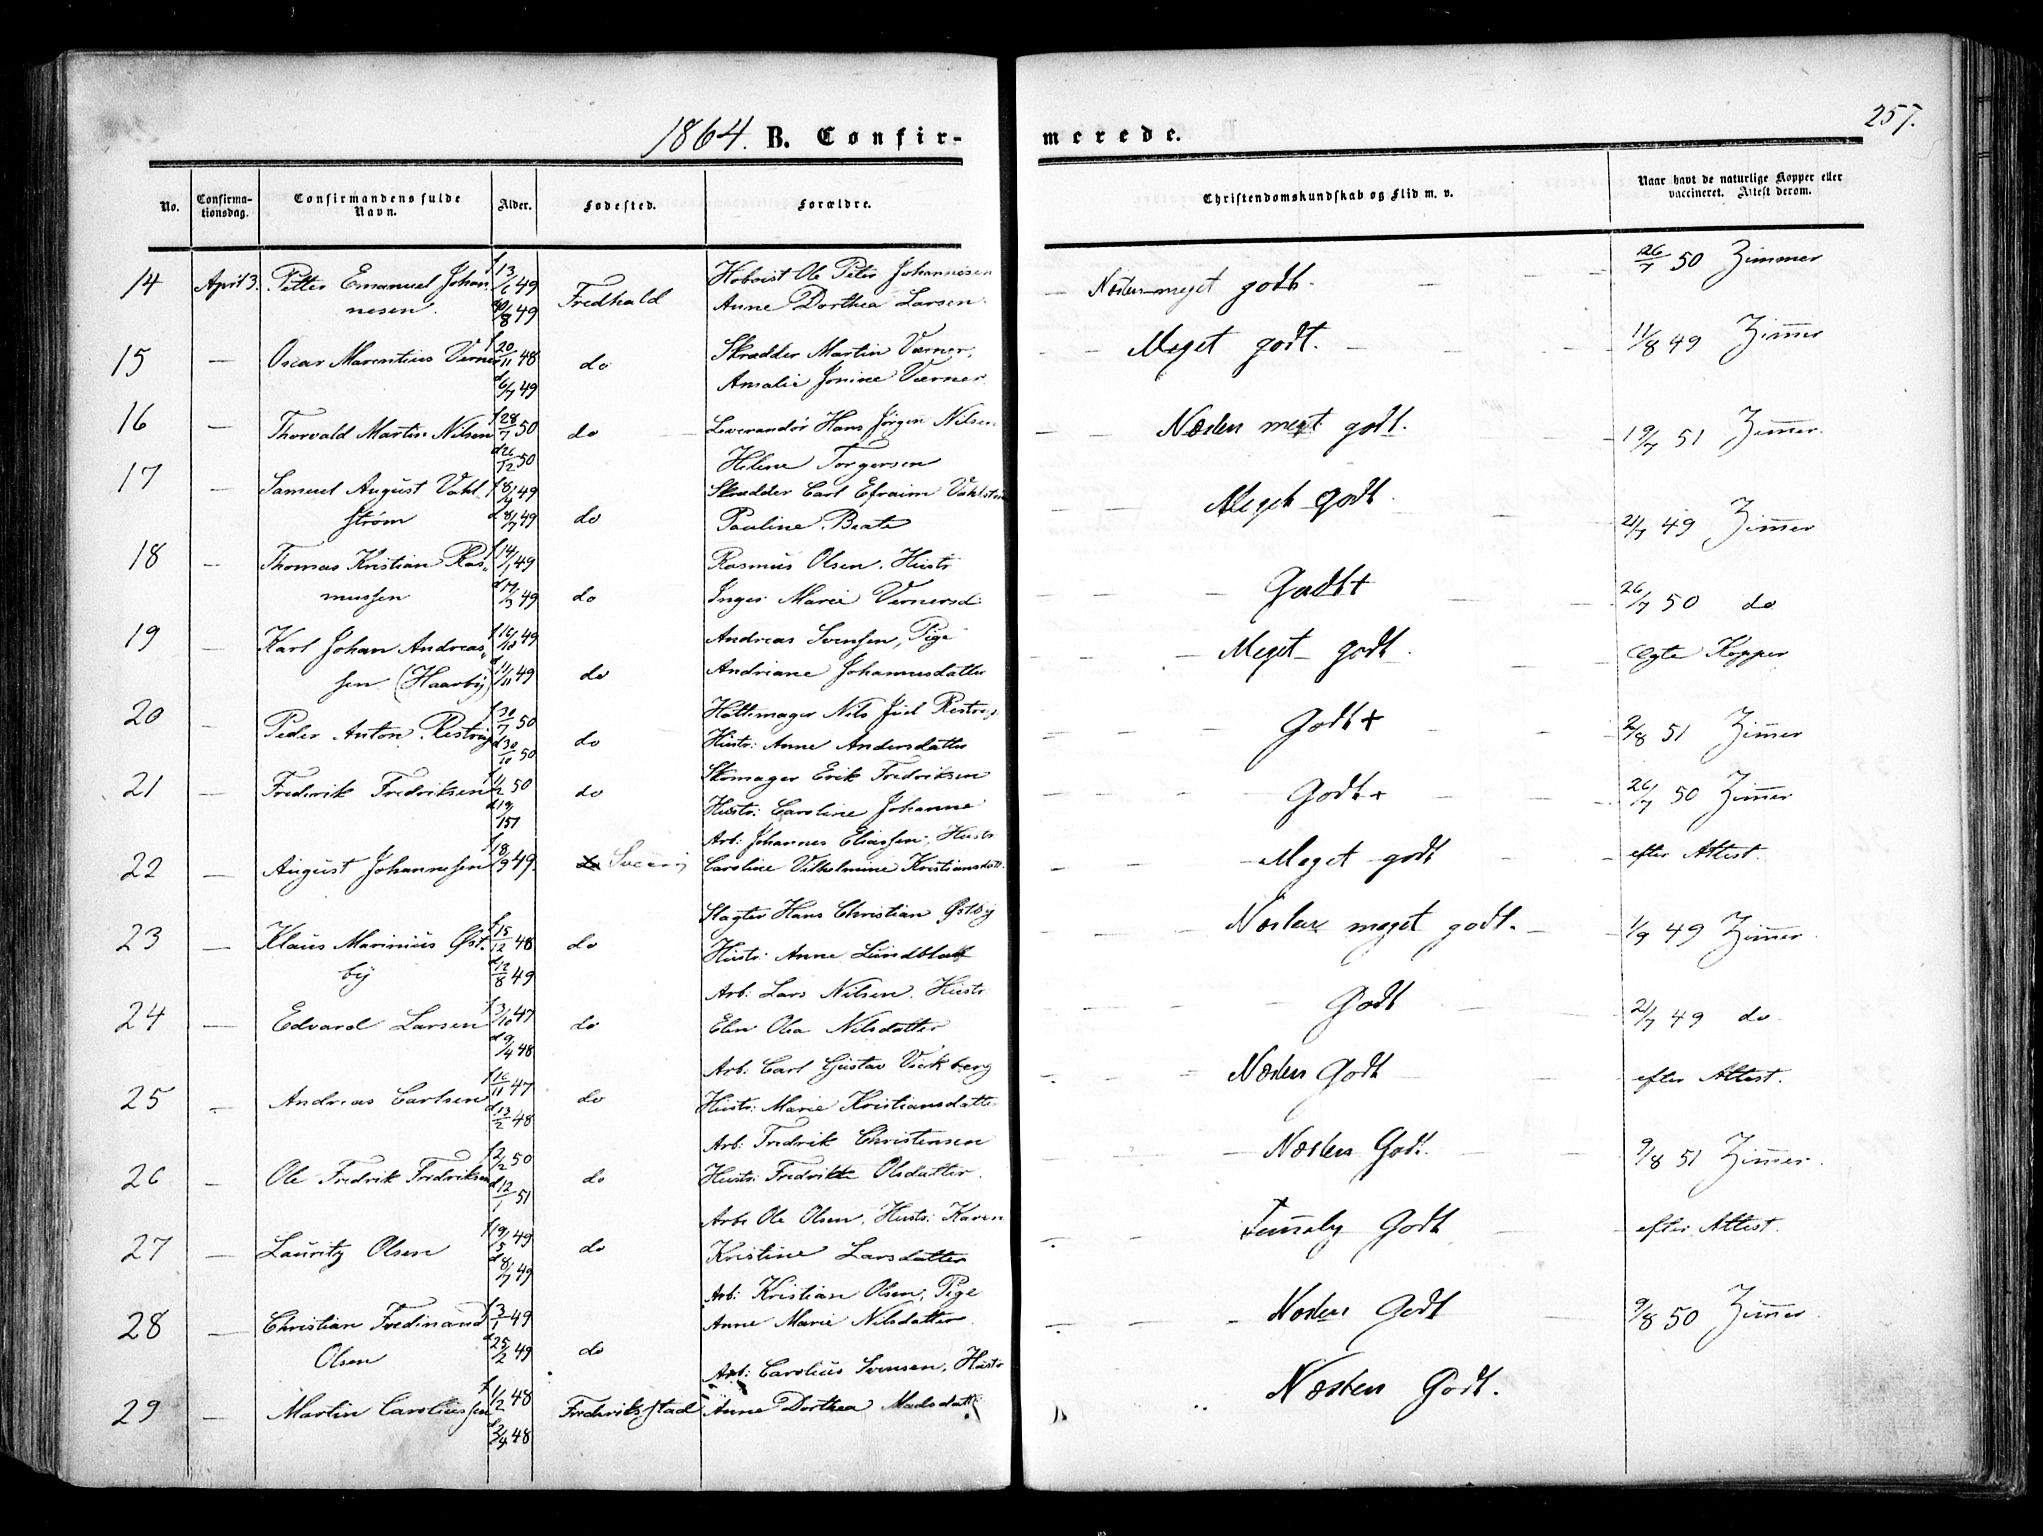 1864. B. Confirmerede. 257.
No. Confirmationsdag. Confirmandens fulde Navn. Alder. Fødested. Forældre. Christendomskundskab og Flid m. v. Naar havt de naturlige Kopper eller vaccineret. Attest derom.
14 April 3. Petter Emanuel Johan f 13/6 49 Hoboist Ole Peter Johannesen Næsten meget godt. 26/7 50 Zimmer
nesen. 8 49 Fredhald Anne Dorthea Larsen
15 — Oscar Marentius Værner f 20/11 48 do Skrædder Martin Værner, Meget godt. 11/8 49 Zimmer
d 6/7 49 Amalie Jonine Værner
16 — Thorvald Martin Nilsen f 28/7 50 do Leverandør Hans Jørgen Nilsen Næsten meget godt. 19/7 51 Zimmer
d 26/12 50 Helene Torgersen
17 — Samuel August Vahl f 8/4 49 Skrædder Carl Efraim Vahlstrøm Meget godt 21/7 49 Zimmer
strøm d 8/7 49 do Pauline Beate
18 — Thomas Kristian Ras f 14/1 49 Rasmus Olsen, Hustr Godt + 26/7 50 do
mussen d 17/3 49 do Inger Marie Vernersd:
19 — Karl Johan Andreas f 16/10 49 Andreas Svensen, Pige Meget godt Ægte Kopper
sen (Haarby) d 11/11 49 do Andriane Johannesdatter
20 — Peder Anton Restrup f 30/7 50 Hattemager Nils Juel Restrup Godt + 2/8 51 Zimmer
d 30/10 50 do Hustr: Anne Andersdatter
21 — Frederik Fredriksen 50 do Skomager Erik Fredriksen Godt + 26/7 50 Zimmer
d 19/1 51 Hustr: Caroline Johanne
22 — August Johannesen f 8/9 49. Sverrig Arb: Johannes Eliassen, Hustr Meget godt efter Attest.
Caroline Vilhelmine Kristiansdatt:
23 — Klaus Marinius Øst. f 15/12 48 do Slagter Hans Christian Østby Næsten meget godt. 1/9 49 Zimmer
by d 12/8 49 Hustr: Anne Lundblad
24 — Edvard Larsen f 3/10 47 do Arb: Lars Nilsen, Hustr Godt 21/7 49 do
d 9/4 48 Elen Olea Nilsdatter
25 — Andreas Carlsen f 16/11 47 do Arb: Carl Gustav Vickberg Næsten Godt efter Attest.
d 13/2 48 Hustr: Marie Kristiansdatter
26 — Ole Fredrik Fredriksen f 2/2 50 do Arb: Fredrik Christensen Næsten Godt. 9/8 51 Zimmer.
d 12/1 51 Hustr: Fredrikke Olsdatter
27 — Lauritz Olsen f 19/5 49 do Arb: Ole Olsen, Hustr: Karen Temmelig Godt efter Attest.
d 8/7 49 Kristine Larsdatter
28 — Christian Ferdinand f 3/1 49 Arb: Kristian Olsen, Pige Næsten Godt 9/8 50 Zimmer
Olsen d 25/2 49 do Anne Marie Nilsdatter
29 — Martin Caroliussen f 1/2 48 Frederikstad Arb: Carolius Svensen, Hustr Næsten Godt.
d 2/4 48 Anne Dorthea Madsdatt: